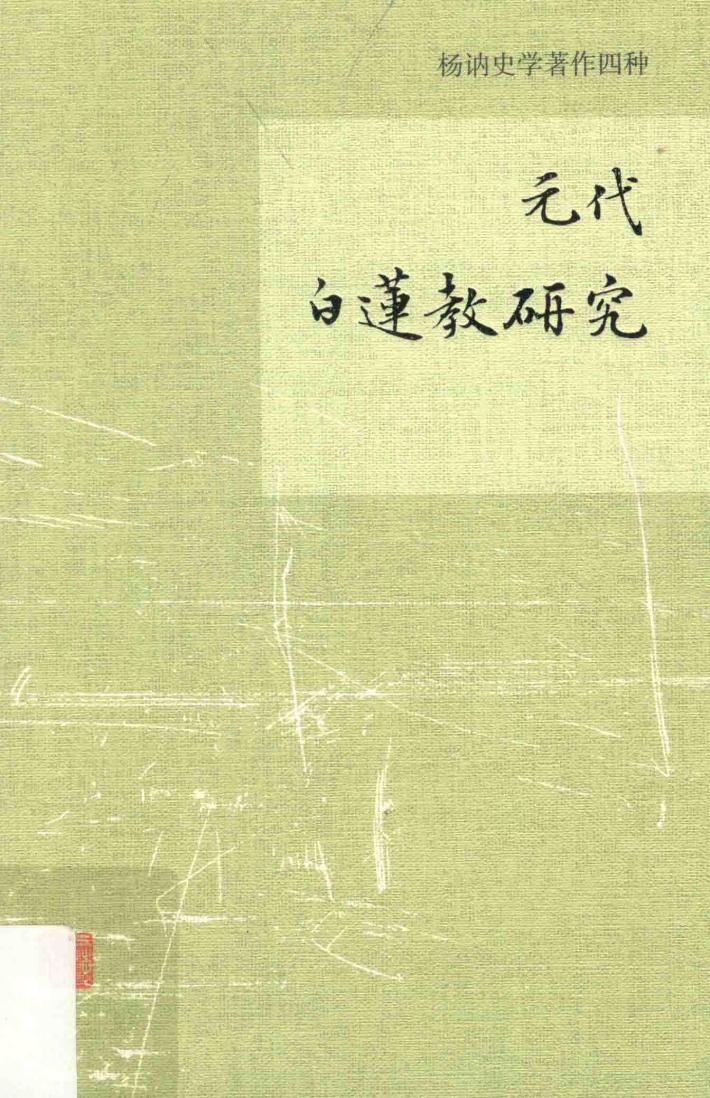 杨讷史学著作四种
元代
白蓮教研究